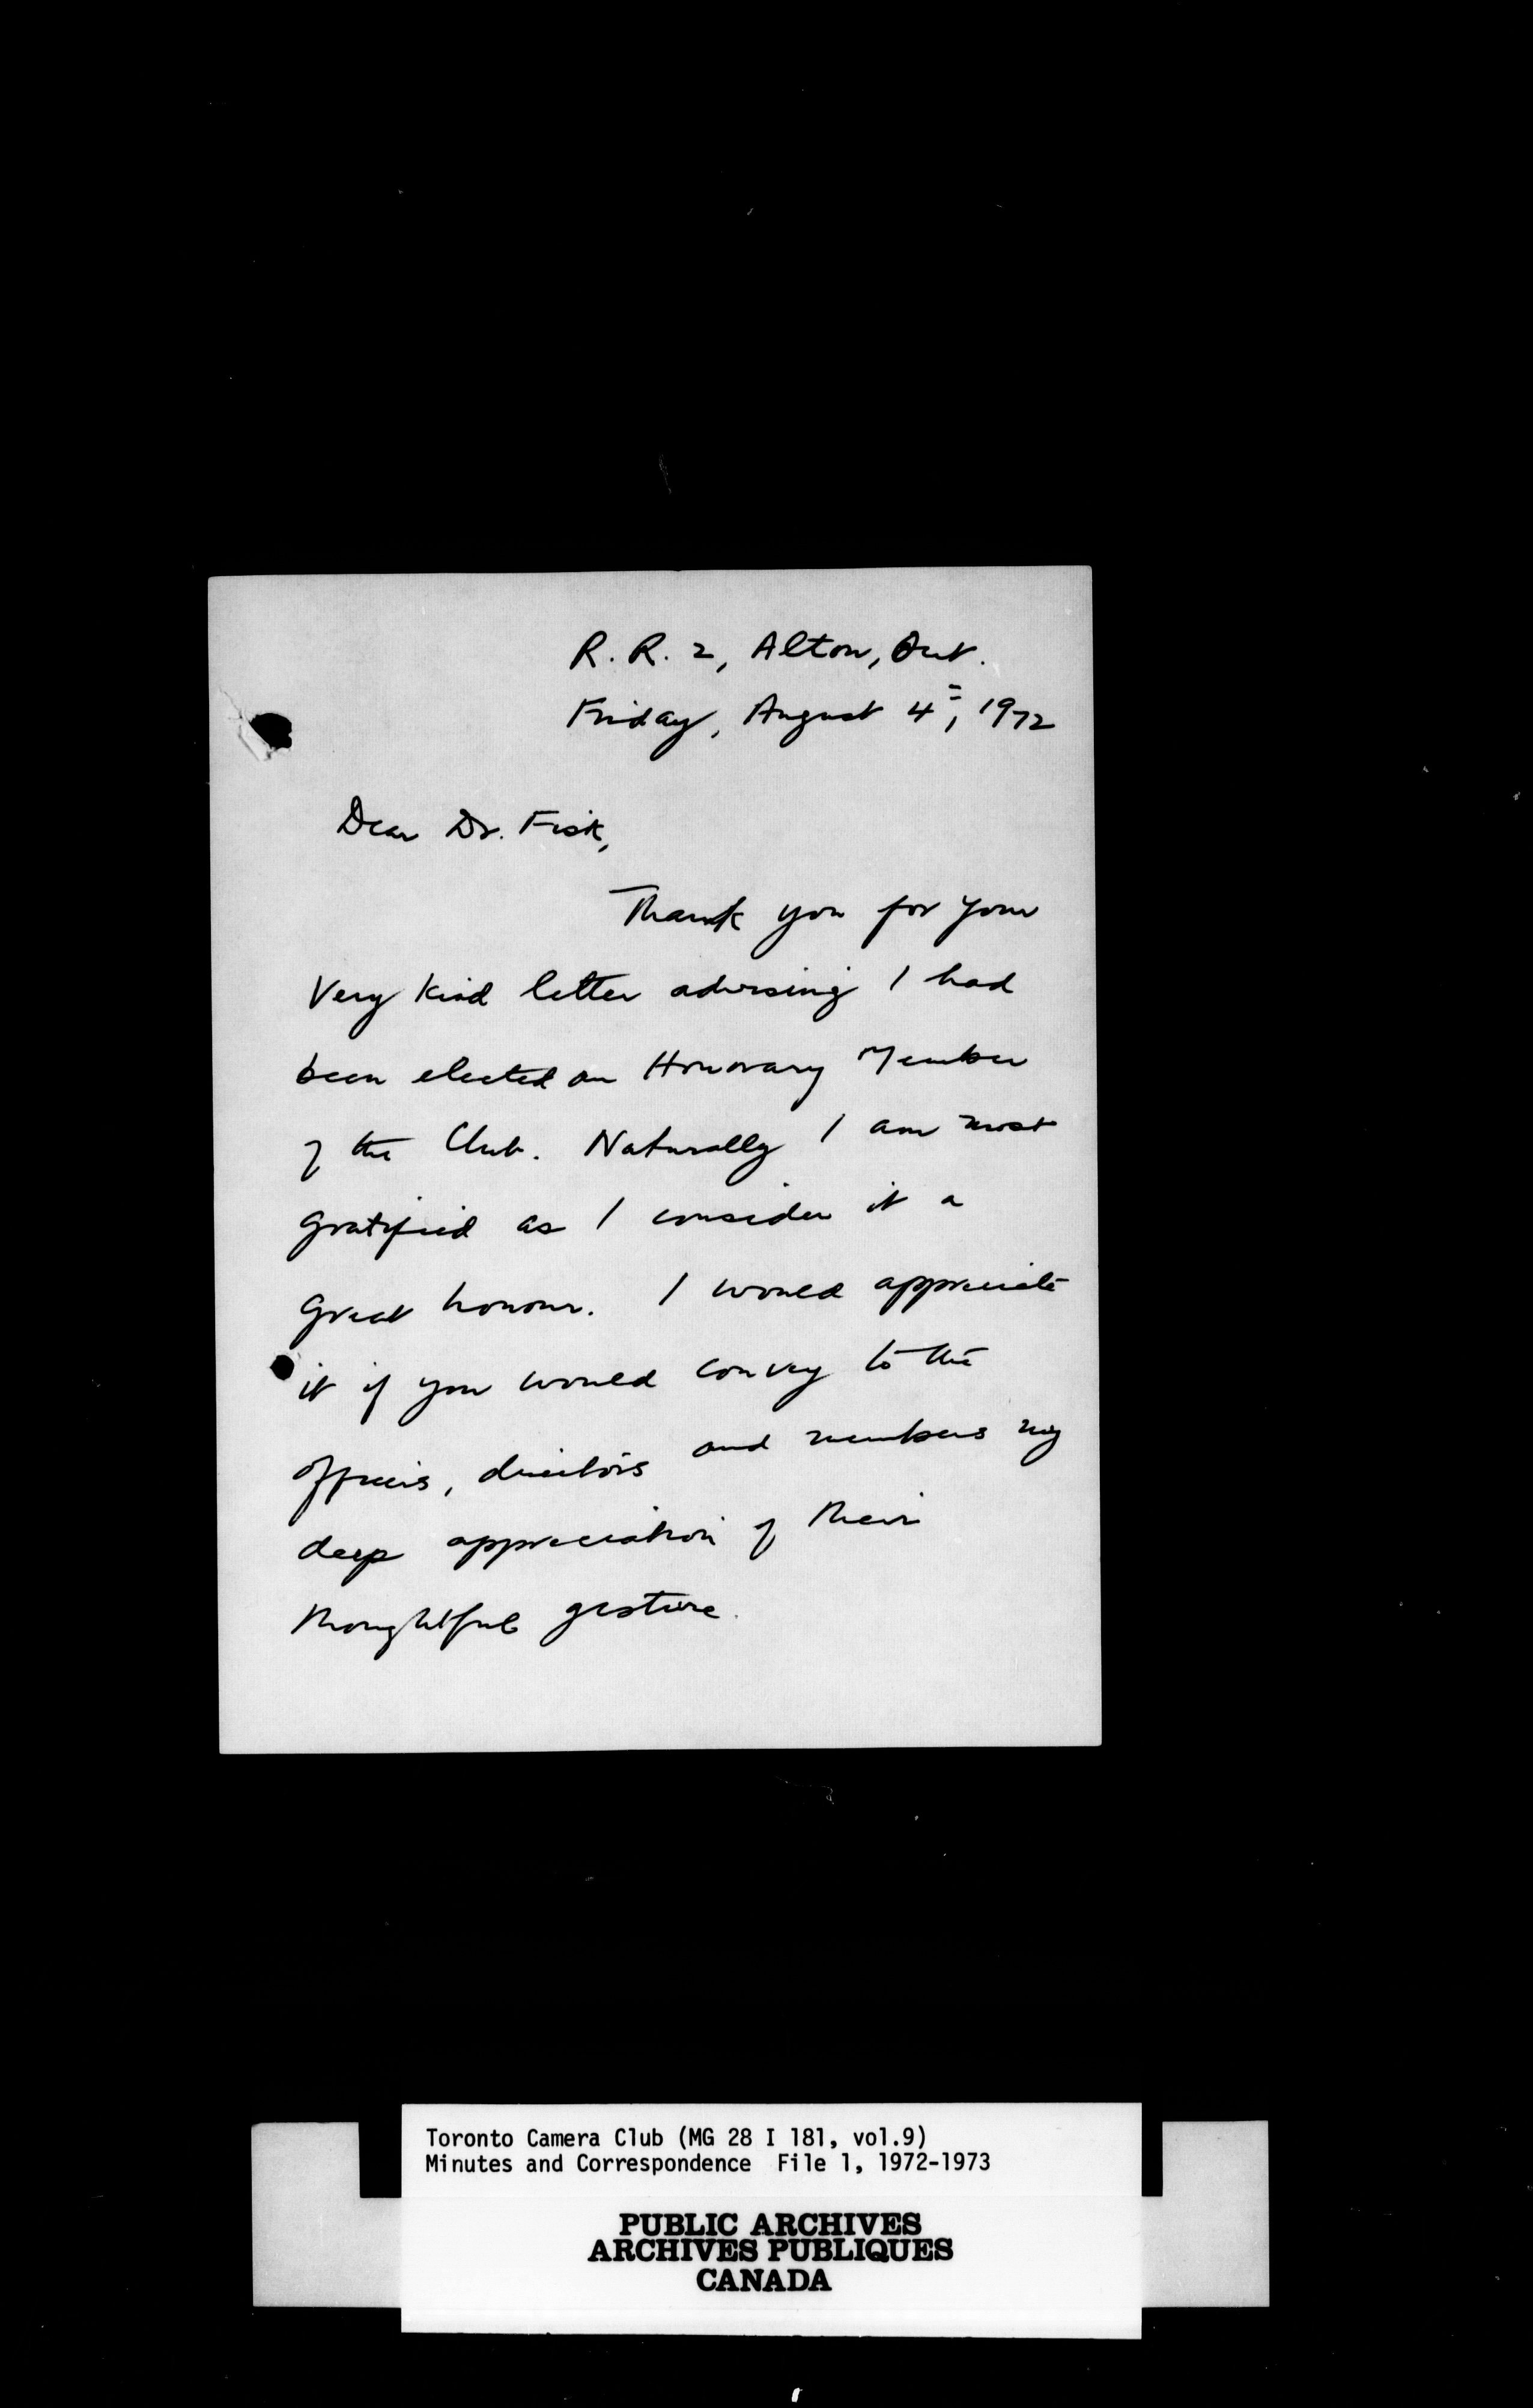 R. R. 2, Alton, Ont.
Friday, August 4=, 1972
Dear Dr. Fisk,
Thank you for your
Very kind letter advising I had
been elected an Honorary Member
of the Club. Naturally I am most
gratified as I consider it a
great honour. I would appreciate
it if you would convey to the
officers, directors and members my
deep appreciation of their
thoughtful gesture.
Toronto Camera Club (MG 28 I 181, vol.9)
Minutes and Correspondence File 1, 1972-1973
PUBLIC ARCHIVES
ARCHIVES PUBLIQUES
CANADA